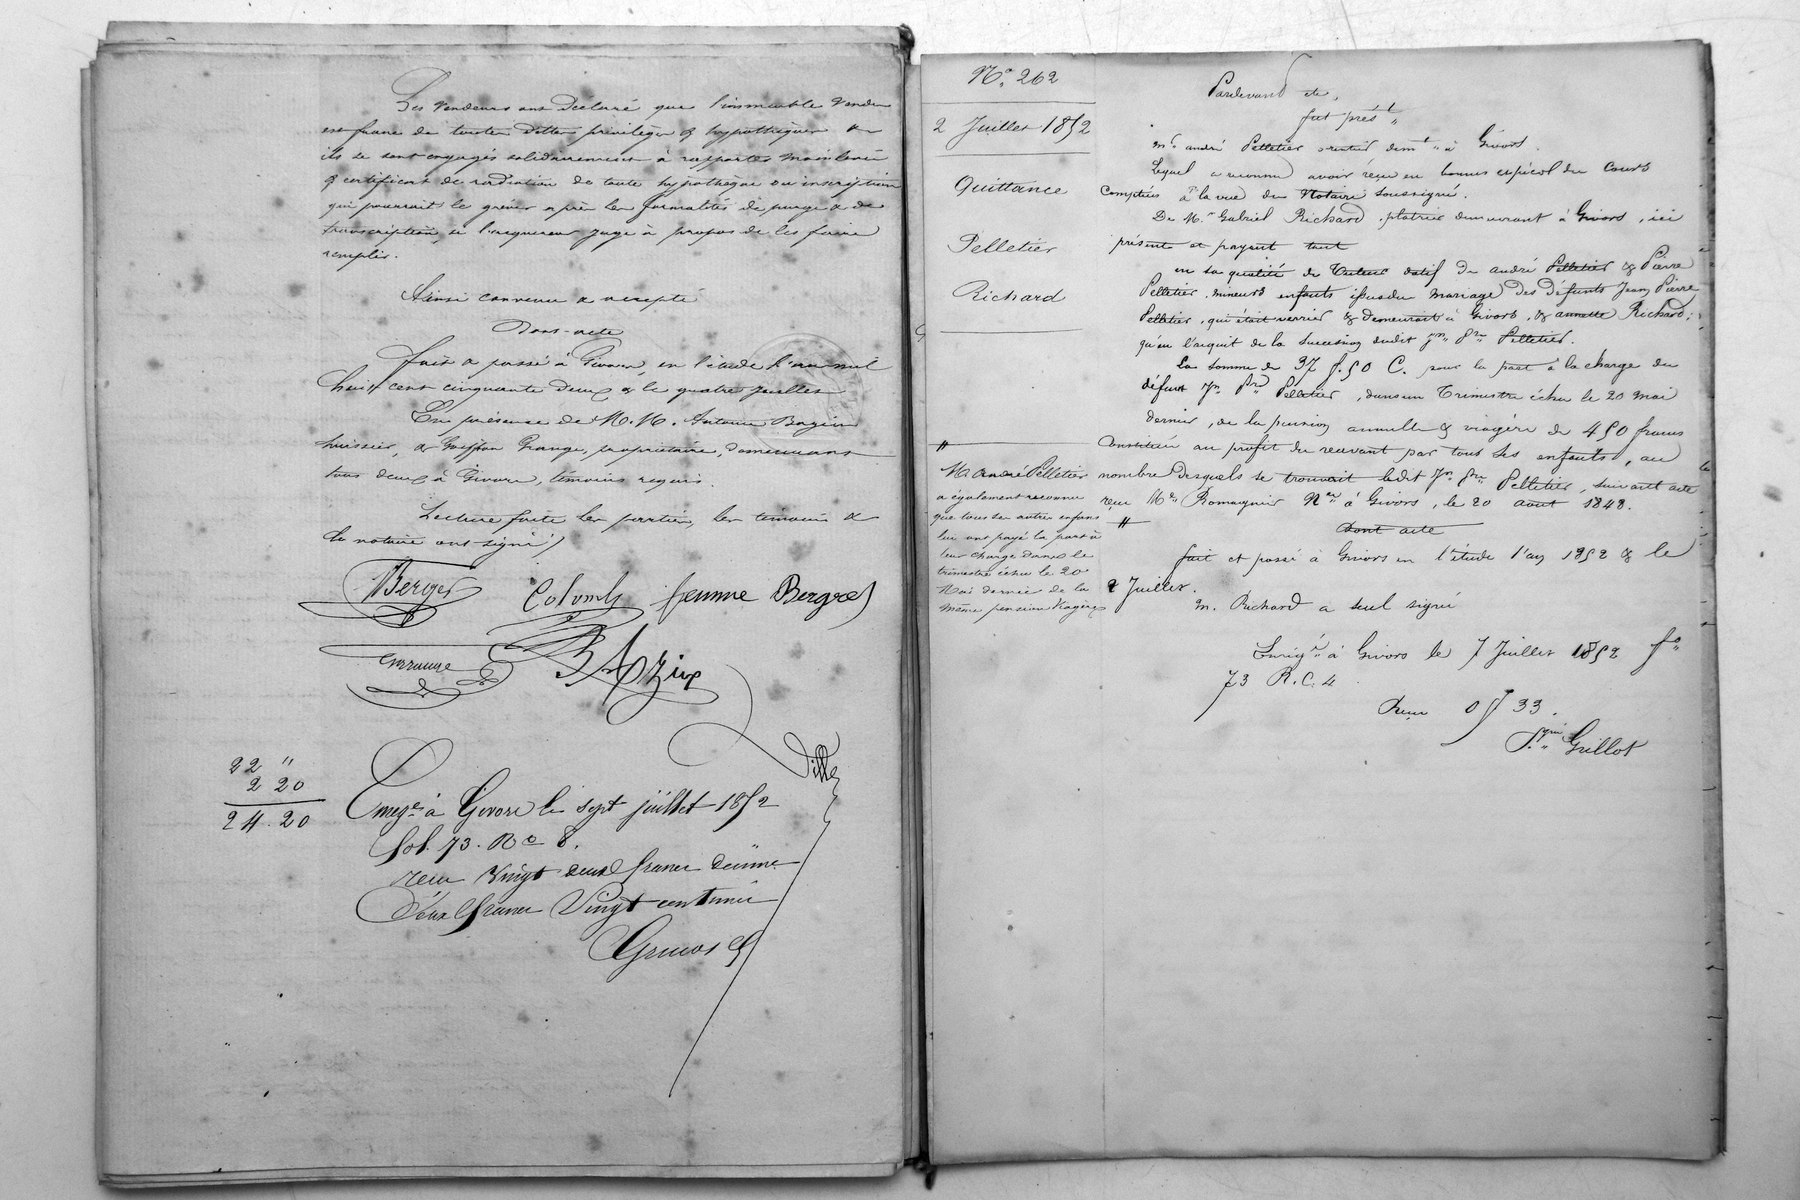 Les vendeurs ont déclaré que l'immeuble vendu
est franc de toutes dettes privilèges & hypothèques &
ils se sont engagés solidairement à rapporter main levée
& certificat de radiation de toute hypothèque ou inscription
qui pourrait le grever après les formalités de purge & de
transcription, si l'acquéreur juge à propos de les faire
remplir.
Ainsi convenu & accepté
Dont-acte
fait & passé à Givors, en l'étude l'an mil
huit cent cinquante deux & le quatre juillet
En présence de M.M. Antoine Bazin
huissier, & Grange, propriétaire, demeurant
tous deux à Givors, témoins requis.
Lecture faite les parties, les témoins &
le notaire ont signé
Berger Colomb femme Berger
Grange BAzin
22 "
2 20
24.20
Enregé à Givors le sept juillet 1852
fol. 73. Ro C 8.
reçu vingt deux francs décime
deux francs vingt centimes
No. 262
2 Juillet 1852
Quittance
Pelletier
Richard
M. André Pelletier
a également reconnu
que tous ses autres enfans
lui ont payé la part à
leur charge dans le
trimestre échu le 20
Mai dernier de la
même pension viagère
Pardevant etc,
fut prést
Mr. andré Pelletier rentier demt à Givors.
Lequel a reconnu avoir reçu en bonnes espèces du Cours
Comptées à la vue du Notaire soussigné.
De Mr Gabriel Richard, platrier demeurant à Givors, ici
présent et payant tant
en sa qualité de Tuteur datif de andré Pelletier & Pierre
Pelletier, mineurs enfants issus du mariage des défunts Jean Pierre
Pelletier, qui était verrier & demeurait à Givors, & annette Richard,
qu'en l'acquit de la Succession dudit Jn Pre Pelletier.
La somme de 37 f. 50 C. pour la part à la charge du
défunt Jn Pre Pelletier, dans un Trimestre échu le 20 mai
dernier, de la pension annuelle & viagère de 450 francs
Constituée au profit du recevant par tous ses enfants, au
nombre desquels se trouvait ledit Jn Pre Pelletier, suivant acte
reçu Me Romagnier Nre à Givors, le 20 aout 1848.
Dont acte
fait et passé à Givors en l'étude l'an 1852 & le
2 Juillet.
M. Richard a seul signé
Enrigé à Givors le 7 Juillet 1852 fo
73 R. C. 4
Reçu 0 f 33.
Signé Grillot